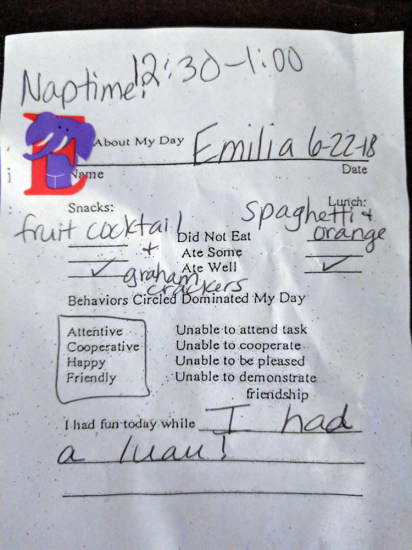 Naptime: 12:30-1:00
About My Day Emilia 6-22-18
Name Date
Snacks: Lunch:
fruit cocktail spaghetti +
Did Not Eat orange
+ Ate Some
✓ graham Ate Well ✓
crackers
Behaviors Circled Dominated My Day
Attentive Unable to attend task
Cooperative Unable to cooperate
Happy Unable to be pleased
Friendly Unable to demonstrate
friendship
I had fun today while I had
a luau!